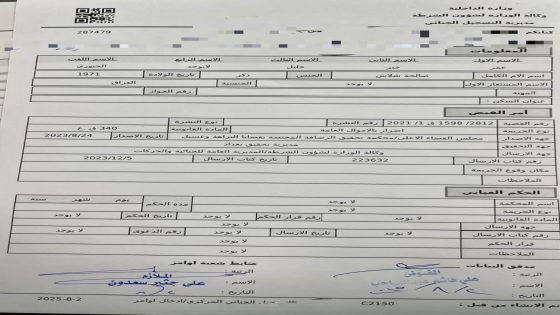 وزارة الداخلية
وكالة الوزارة لشؤون الشرطة
مديرية التسجيل الجنائي
287479
كتابكم
المعلومات
الاسم الاول الاسم الثاني الاسم الثالث الاسم الرابع الاسم اللقب
عمر خليل لايوجد الجبوري
اسم الام الكامل صالحة شلاش الجنس ذكر تاريخ الولادة 1971
الاسم المستعار الاول لايوجد الجنسية العراق
المهنة رقم الجواز
عنوان السكن :
أمر القبض
رقم القضية 2012/ 1598 ق/1 2021 رقم النشرة نوع النشرة
نوع الجريمة اضرار بالاموال العامة المادة القانونية 340 ق.ع
جهة الاصدار مجلس القضاء الاعلى/محكمة تحقيق الرصافة المختصة بقضايا النزاهة وغسيل تاريخ الاصدار 2023/8/24
جهة التحقيق مديرية تحقيق بغداد
جهة الارسال وكالة الوزارة لشؤون الشرطة/المديرية العامة للجنائية والحركات
رقم كتاب الارسال 223632 تاريخ كتاب الارسال 2023/12/5
مكان وقوع الجريمة
الملاحظات
الحكم الغيابي
اسم المحكمة لا يوجد مدة الحكم يوم شهر سنة
نوع الجريمة لا يوجد
المادة القانونية لا يوجد رقم قرار الحكم لا يوجد تاريخ الحكم لا يوجد
جهة الارسال لا يوجد
رقم كتاب الارسال لا يوجد تاريخ الارسال لا يوجد رقم الدعوى لا يوجد
قرار الحكم لا يوجد
الملاحظات لا يوجد
مدقق البيانات ضابط شعبة اوامر
الرتبة : الرتبة : الملازم
الاسم : الاسم : علي سعدون
التاريخ التاريخ
تم الانشاء من قبل : C2150 الجنائي المركزي/ادخال اوامر 2025-8-2